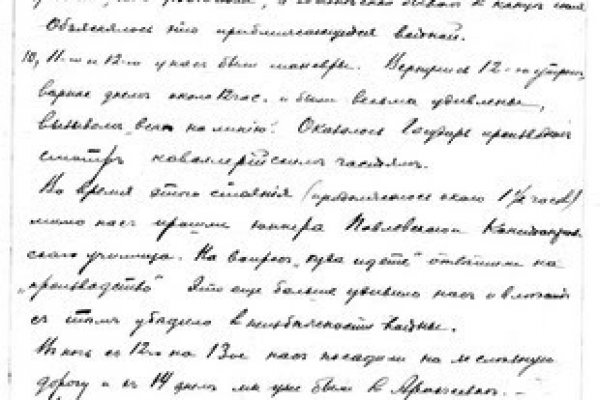 Объяснялось это приближающейся войной.
10, 11-го и 12-го у нас были маневры. Вернулись 12-го утром,
вернее днем около 12 час. и были весьма удивлены,
вызовом „всех на линию". Оказалось Государь производит
смотр кавалерийским частям.
Во время этого стояния (продолжалось около 1½ часов)
мимо нас прошли юнкера Павловского и
ского училища. На вопрос „куда идете" ответили на
„производство" Это еще больше удивило нас и
с тем убедило в неизбежности войны.
В ночь с 12го на 13ое нас посадили на железную
дорогу и 14 днем мы уже были в